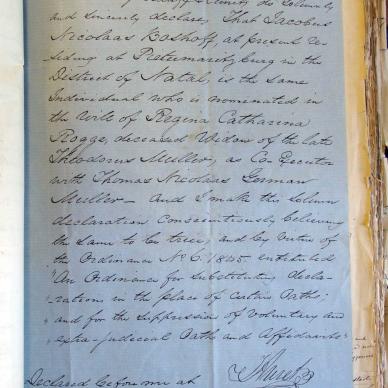 do Solemnly
and sincerely declare, That Jacobus
Nicolaas Boshoff, at present re-
siding at Pietermaritzburg in the
District of Natal, is the Same
Individual who is nominated in
the Will of Regina Catharina
Rogge, deceased Widow of the late
Theodorus Muller, as Co-Executor
with Thomas Nicolaas German
Muller - And I make this solemn
declaration conscientiously believing
the same to be true, and by virtue of
the Ordinance No 6. 1845. entituled
"An Ordinance for Substituting decla-
"rations in the place of certain Oaths;
"and for the suppression of Voluntary and
"extra-judicial Oaths and Affidavits"
Declared before me at